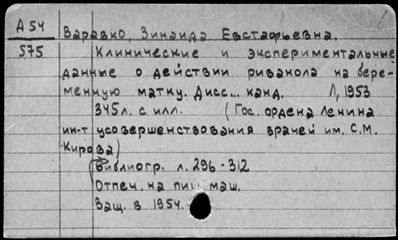 А54 Варавко, Зинаида Евстафьевна.
575 Клинические и экспериментальные
данные о действии риванола на бере-
менную матку. Дисс... канд. Л, 1953
345л. с илл. (Гос. ордена Ленина
ин-т усовершенствования врачей им. С.М.
Кирова)
Библиогр. л. 296-312
Отпеч. на пиш. маш.
Защ. в 1954.